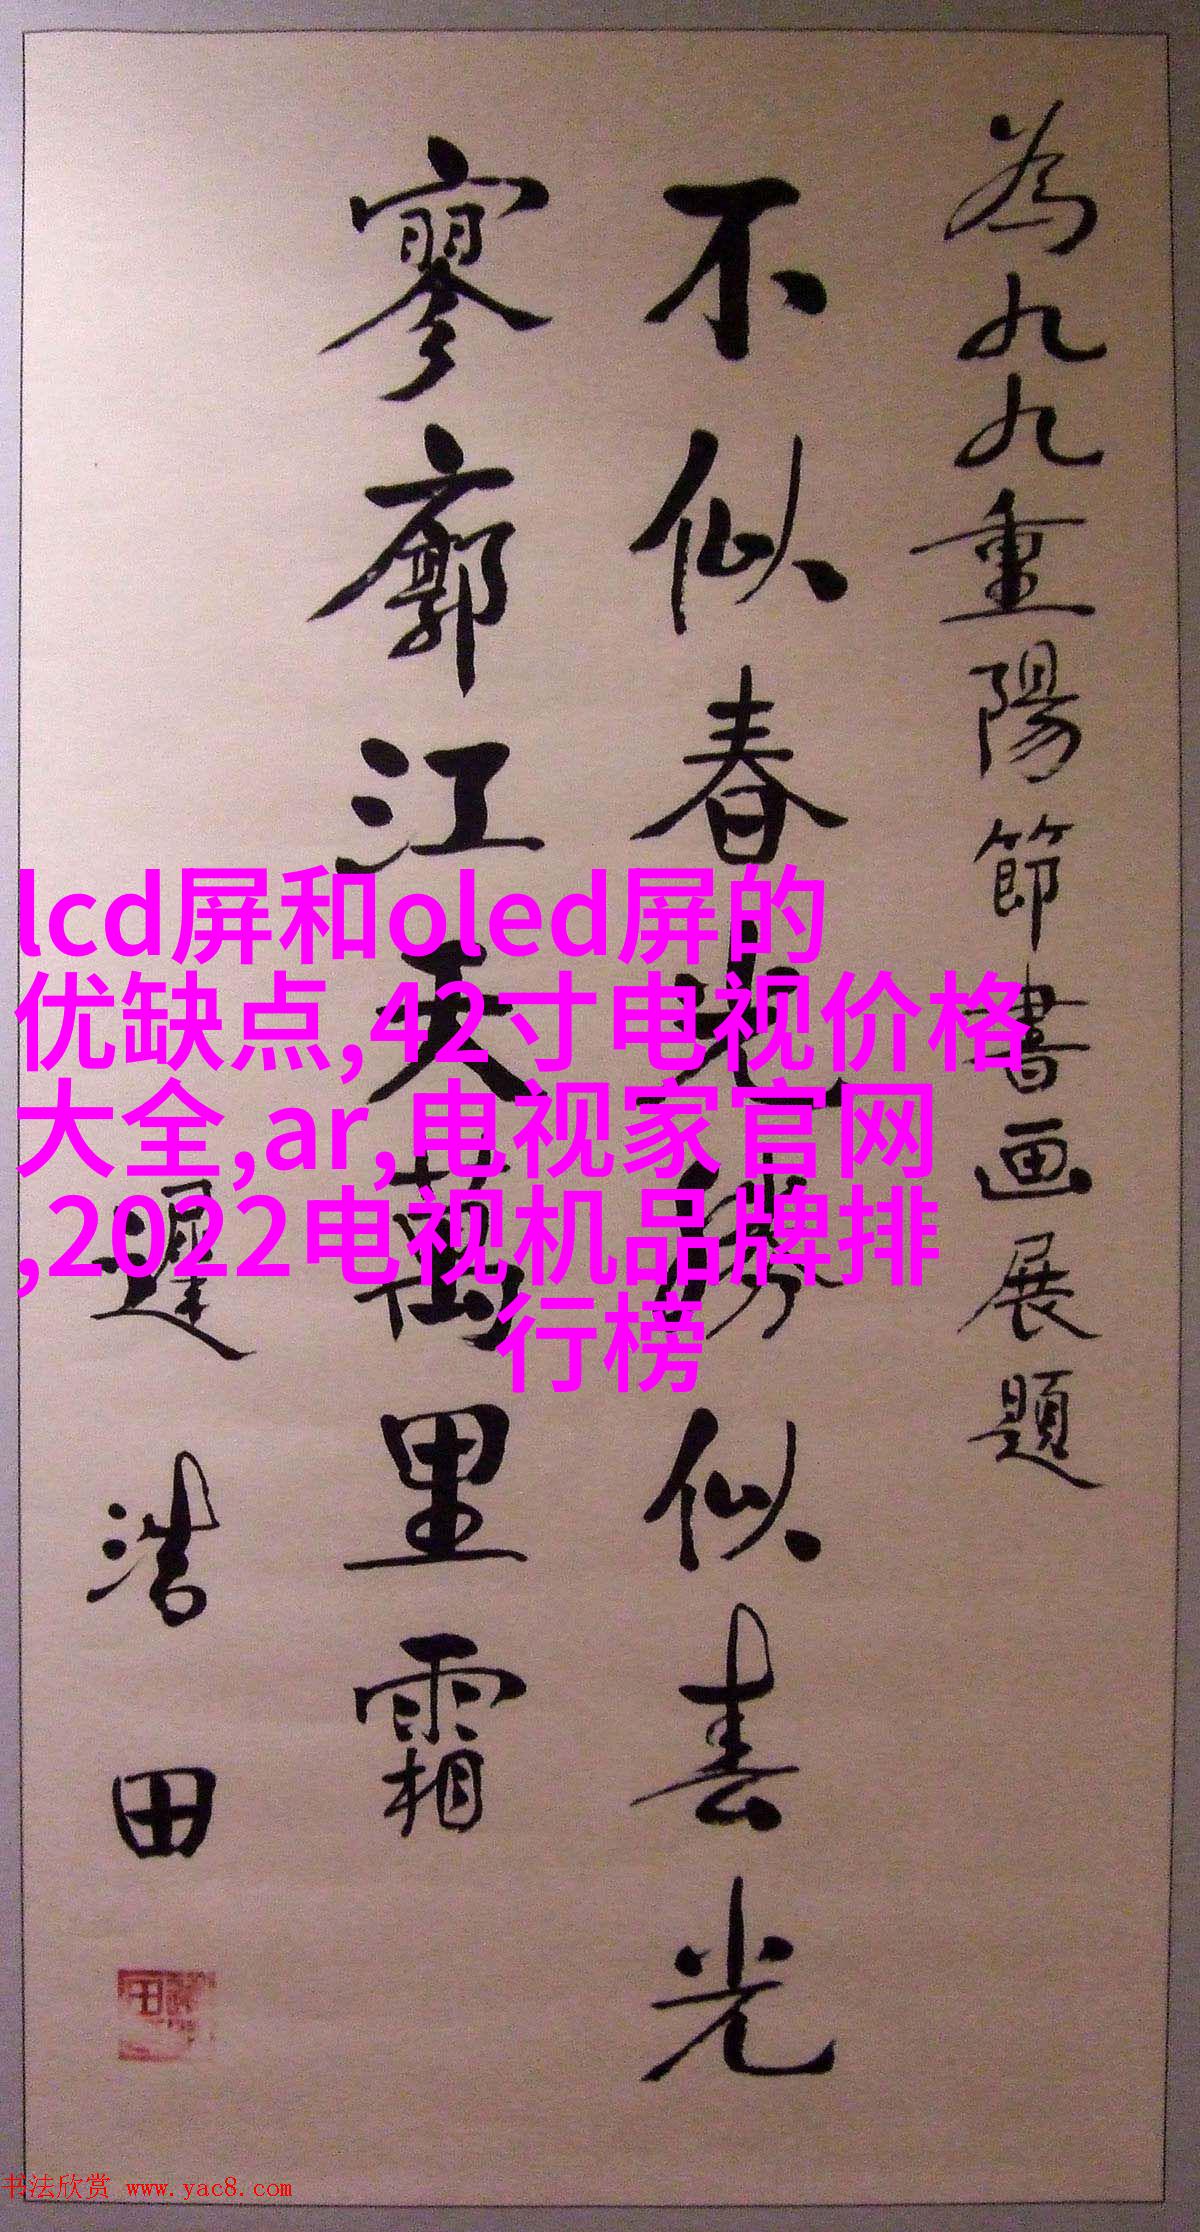 為九九重陽節書画展題
不似春光勝似春光
寥廓江天萬里霜
遲浩田
lcd屏和oled屏的
优缺点,42寸电视价格
大全,ar,电视家官网
,2022电视机品牌排
行榜
书法欣赏 www.yac8.com